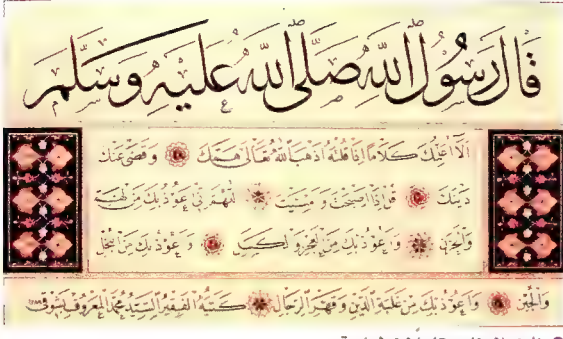 قَالَ رَسُولُ اللّٰهِ صَلَّى اللّٰهُ عَلَيْهِ وَسَلَّمَ
اَلَا اُعَلِّمُكَ كَلَامًا اِذَا قُلْتَهُ اَذْهَبَ اللّٰهُ تَعَالٰى هَمَّكَ وَقَضٰى عَنْكَ
دَيْنَكَ قُلْ اِذَا اَصْبَحْتَ وَاَمْسَيْتَ اللّٰهُمَّ اِنِّى اَعُوذُ بِكَ مِنَ الْهَمِّ
وَالْحَزَنِ وَاَعُوذُ بِكَ مِنَ الْعَجْزِ وَالْكَسَلِ وَاَعُوذُ بِكَ مِنَ الْبُخْلِ
وَالْجُبْنِ وَاَعُوذُ بِكَ مِنْ غَلَبَةِ الدَّيْنِ وَقَهْرِ الرِّجَالِ كَتَبَهُ الْفَقِيرُ السَّيِّدُ مُحَمَّدُ الْمَعْرُوفُ بِشَوْقِى